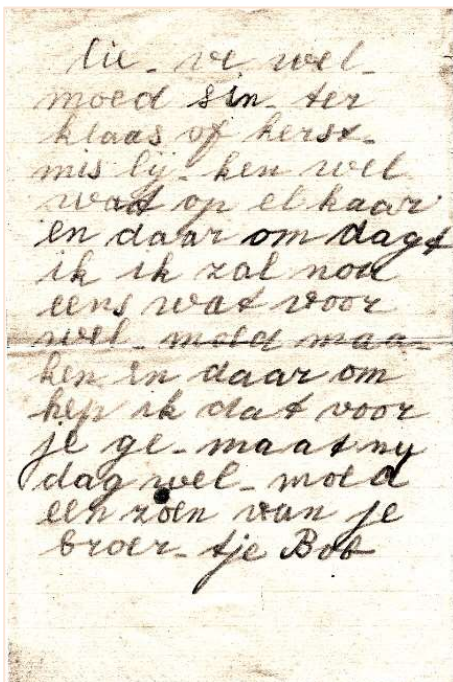 lie- ve wel-
moed sin- ter
klaas of kerst-
mis lij- ken wel
wat op el kaar
en daar om dagt
ik ik zal nou
eens wat voor
wel- moed maa-
ken en daar om
hep ik dat voor
je ge- maat nu
dag wel- moed
een zoen van je
broer- tje Bob